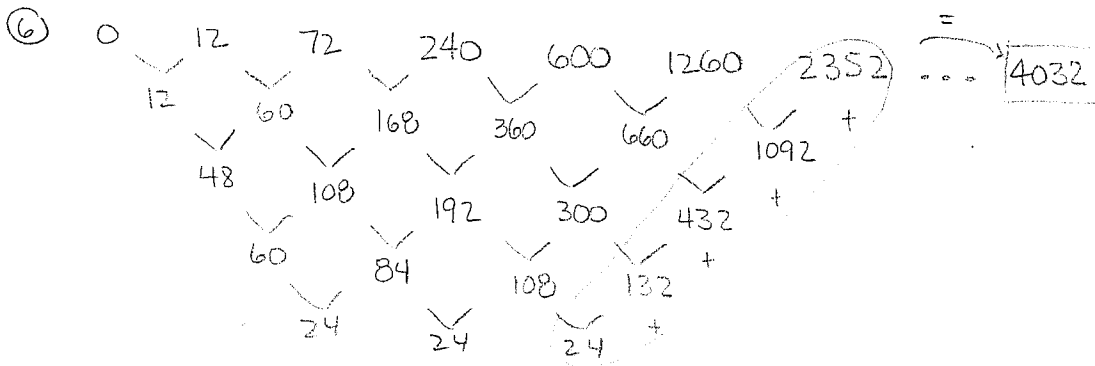 6 0 12 72 240 600 1260 2352 ... = 4032
12 60 168 360 660 1092 +
48 108 192 300 432 +
60 84 108 132 +
24 24 24 +